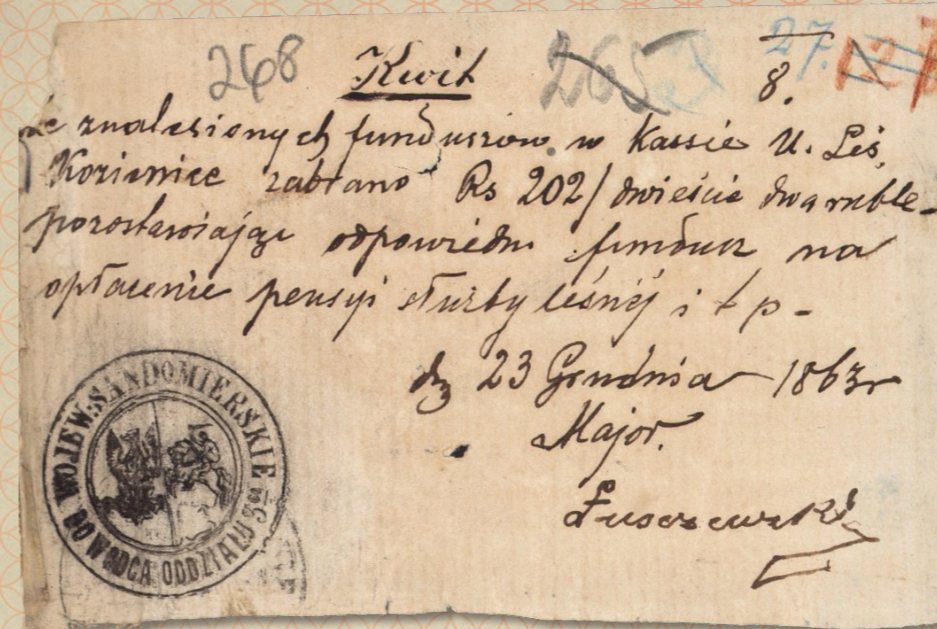 268 Kwit 265 27.
8.
Ze znalezionych funduszow w Kassie U. Leś.
Kozienice zabrano Rs 202/ dwieście dwa ruble -
pozostawiając odpowiedni fundusz na
opłacenie pensyi służby leśnéj i t p -
dz 23 Grudnia 1863r
Major.
Łuszczewski
WOJEW: SANDOMIERSKIE
DOWÓDCA ODDZIAŁU 3go